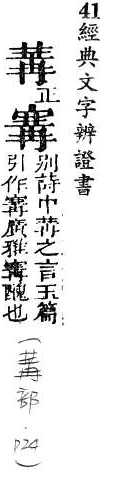 41 經典文字辨證書
冓正
別詩中冓之言玉篇
引作廣雅醜也
(冓部. p24)